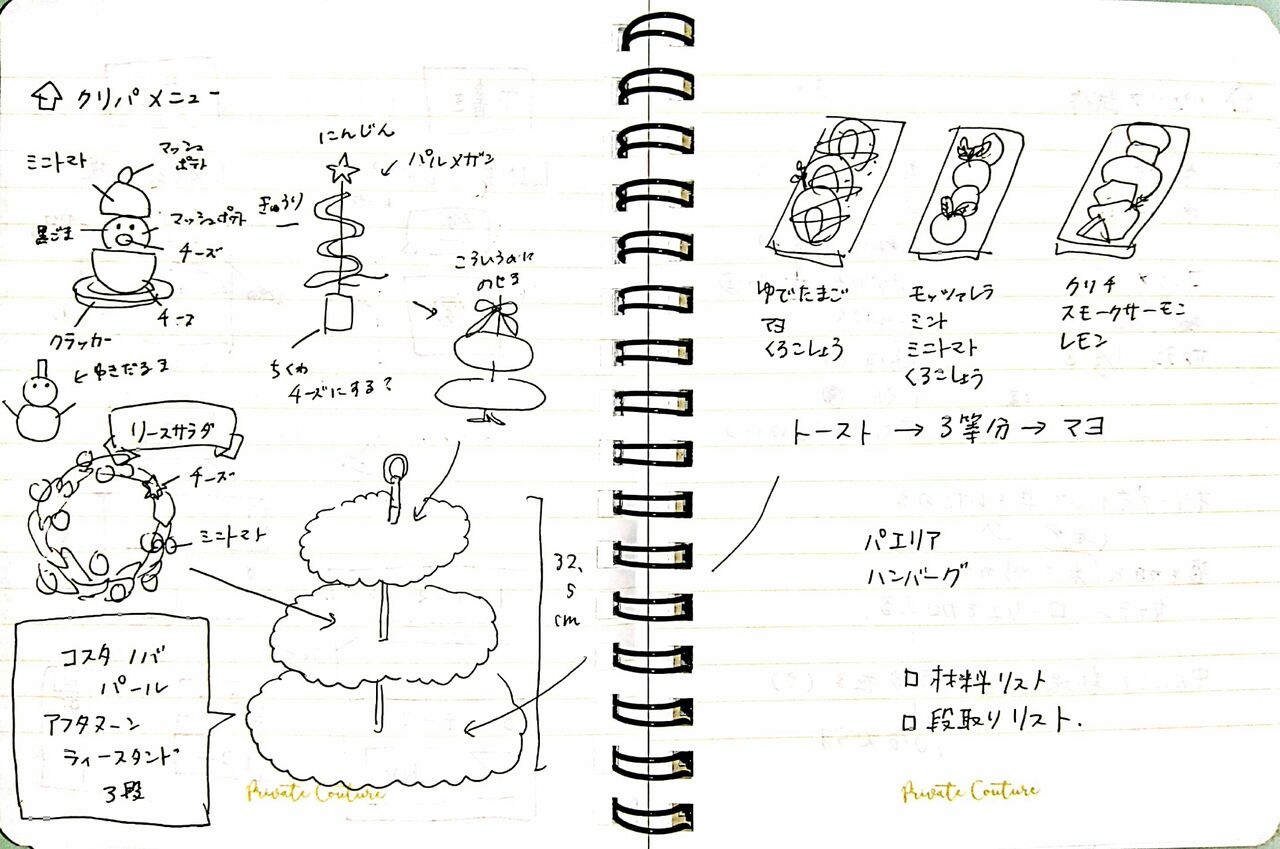 クリパメニュー
ミニトマト
マッシュ
ポテト
黒ごま
マッシュポテト
チーズ
チーズ
クラッカー
ゆきだるま
にんじん
パルメザン
きゅうり
ちくわ
チーズにする?
のじる
リースサラダ
チーズ
ミニトマト
32.
5
cm
コスタノバ
パール
アフタヌーン
ティースタンド
3段
Private Couture
ゆでたまご
マヨ
くろこしょう
モッツァレラ
ミント
ミニトマト
くろこしょう
クリチ
スモークサーモン
レモン
トースト → 3等分 → マヨ
パエリア
ハンバーグ
□ 材料リスト
□ 段取りリスト.
Private Couture